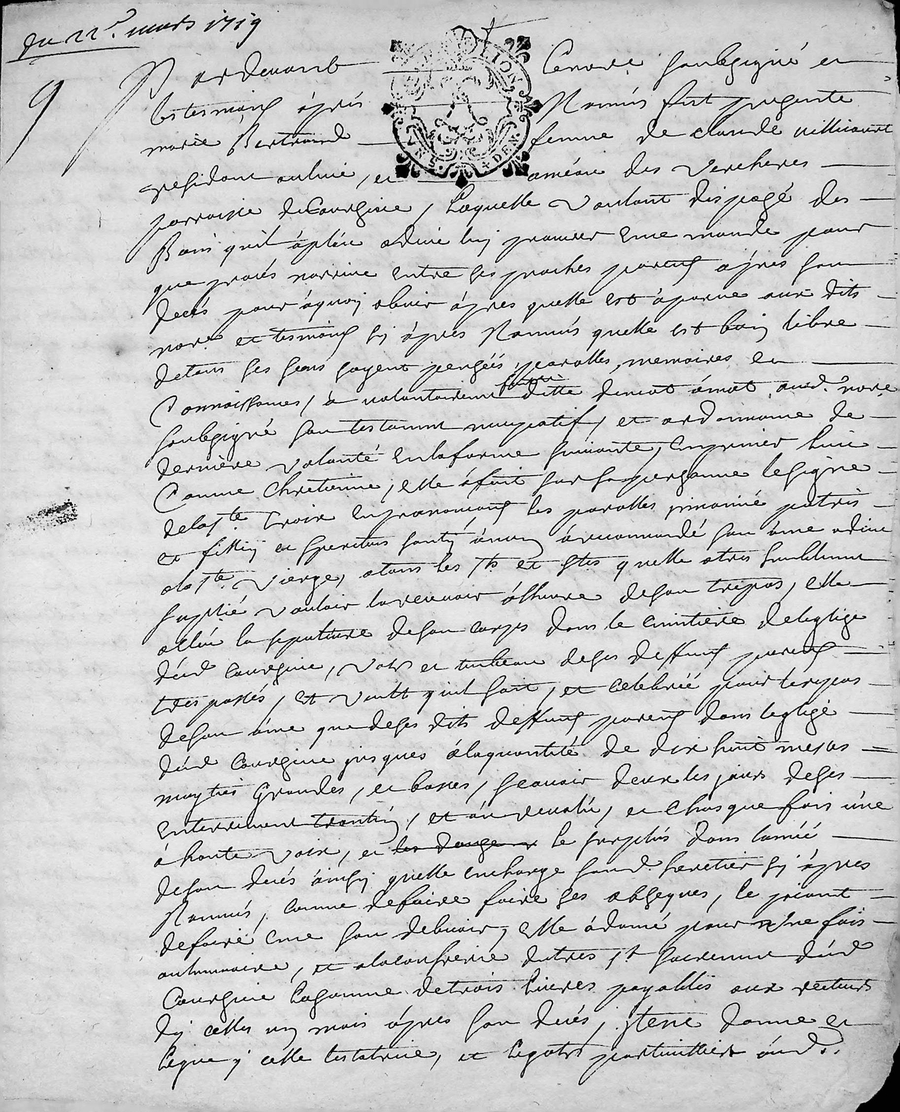 du 22e. mars 1719
9
Pardevant Le nore. soubsigné et
les tesmoins après Nommés fut presente
marie Bertrand femme de claude
residant au améau des Vercheres
parroisse de Courgine, Laquelle voulant dispozé des
Biens qu'il à pleu a dieu luy et ne mande pour
que procés n'arrive entre ses proches parens après son
decés pour à quoy obvier après quelle est aparue aux dits
nore. et tesmoins sy après Nommés quelle est bien libre
de tous ses sens sages pensées parolles, memoires et
Connoissance, à volontairement ditte de mot à mot aud. nore
soubsigné son testament nuncupatif, et ordonnance de
dernière volonté en la forme suivante, en premier lieu
Comme Chretienne, elle à fait sur sa personne le signe
de la ste croix en prononcent les parolles in nomine patris
et fillij et speritus santy amen à recommandé son âme a dieu
a la ste Vierge, a tous les sts et stes quelle a tres humblement
suplié vouloir la recevoir à l'heure de son trepas, elle
ellie la sepulture de son corps dans le cimitiere de leglise
dud Courgine, vas et tombeau de ses deffuns parens
tres passés, et veult qu'il soit, et celebrée pour le repos
de son âme que de ses dits deffuns parens dans leglise
dud Courgine jusques à la quantité de dix huit messes
moytiés Grandes, et basses, scavoir deux les jours de ses
Enterrement trantin, et en revolu, et chasque fois une
à haute voix, et le surplus dans l'année
de son decés ainsy quelle en charge son d. heretier sy après
Nommés, comme de faire faire ses obseques, le priant
de faire en son debvoir, elle à donné pour une fois
aulmonaire, et a la confrerie du tres st sacrement dud
Courgine la somme de trois livres payables aux recteurs
dycelles un mois après son decés, item donne et
legue y celle testatrice, et legats particulliers aud.